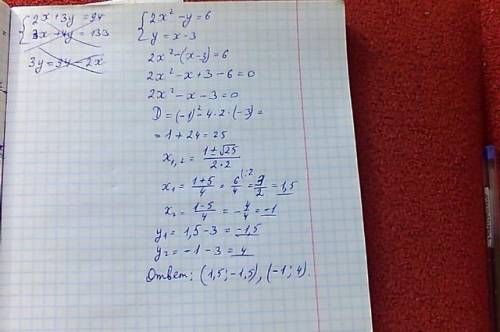 {2x + 3y = 94
3x + 4y = 133
3y = 94 - 2x
{2x² - y = 6
y = x - 3
2x² - (x - 3) = 6
2x² - x + 3 - 6 = 0
2x² - x - 3 = 0
D = (-1)² - 4 · 2 · (-3) =
= 1 + 24 = 25
x₁,₂ = (1 ± √25) / (2 · 2)
x₁ = (1 + 5) / 4 = 6 / 4 (:2 = 3 / 2 = 1,5
x₂ = (1 - 5) / 4 = - 4 / 4 = -1
y₁ = 1,5 - 3 = -1,5
y₂ = -1 - 3 = 4
Ответ: (1,5; -1,5), (-1; 4).